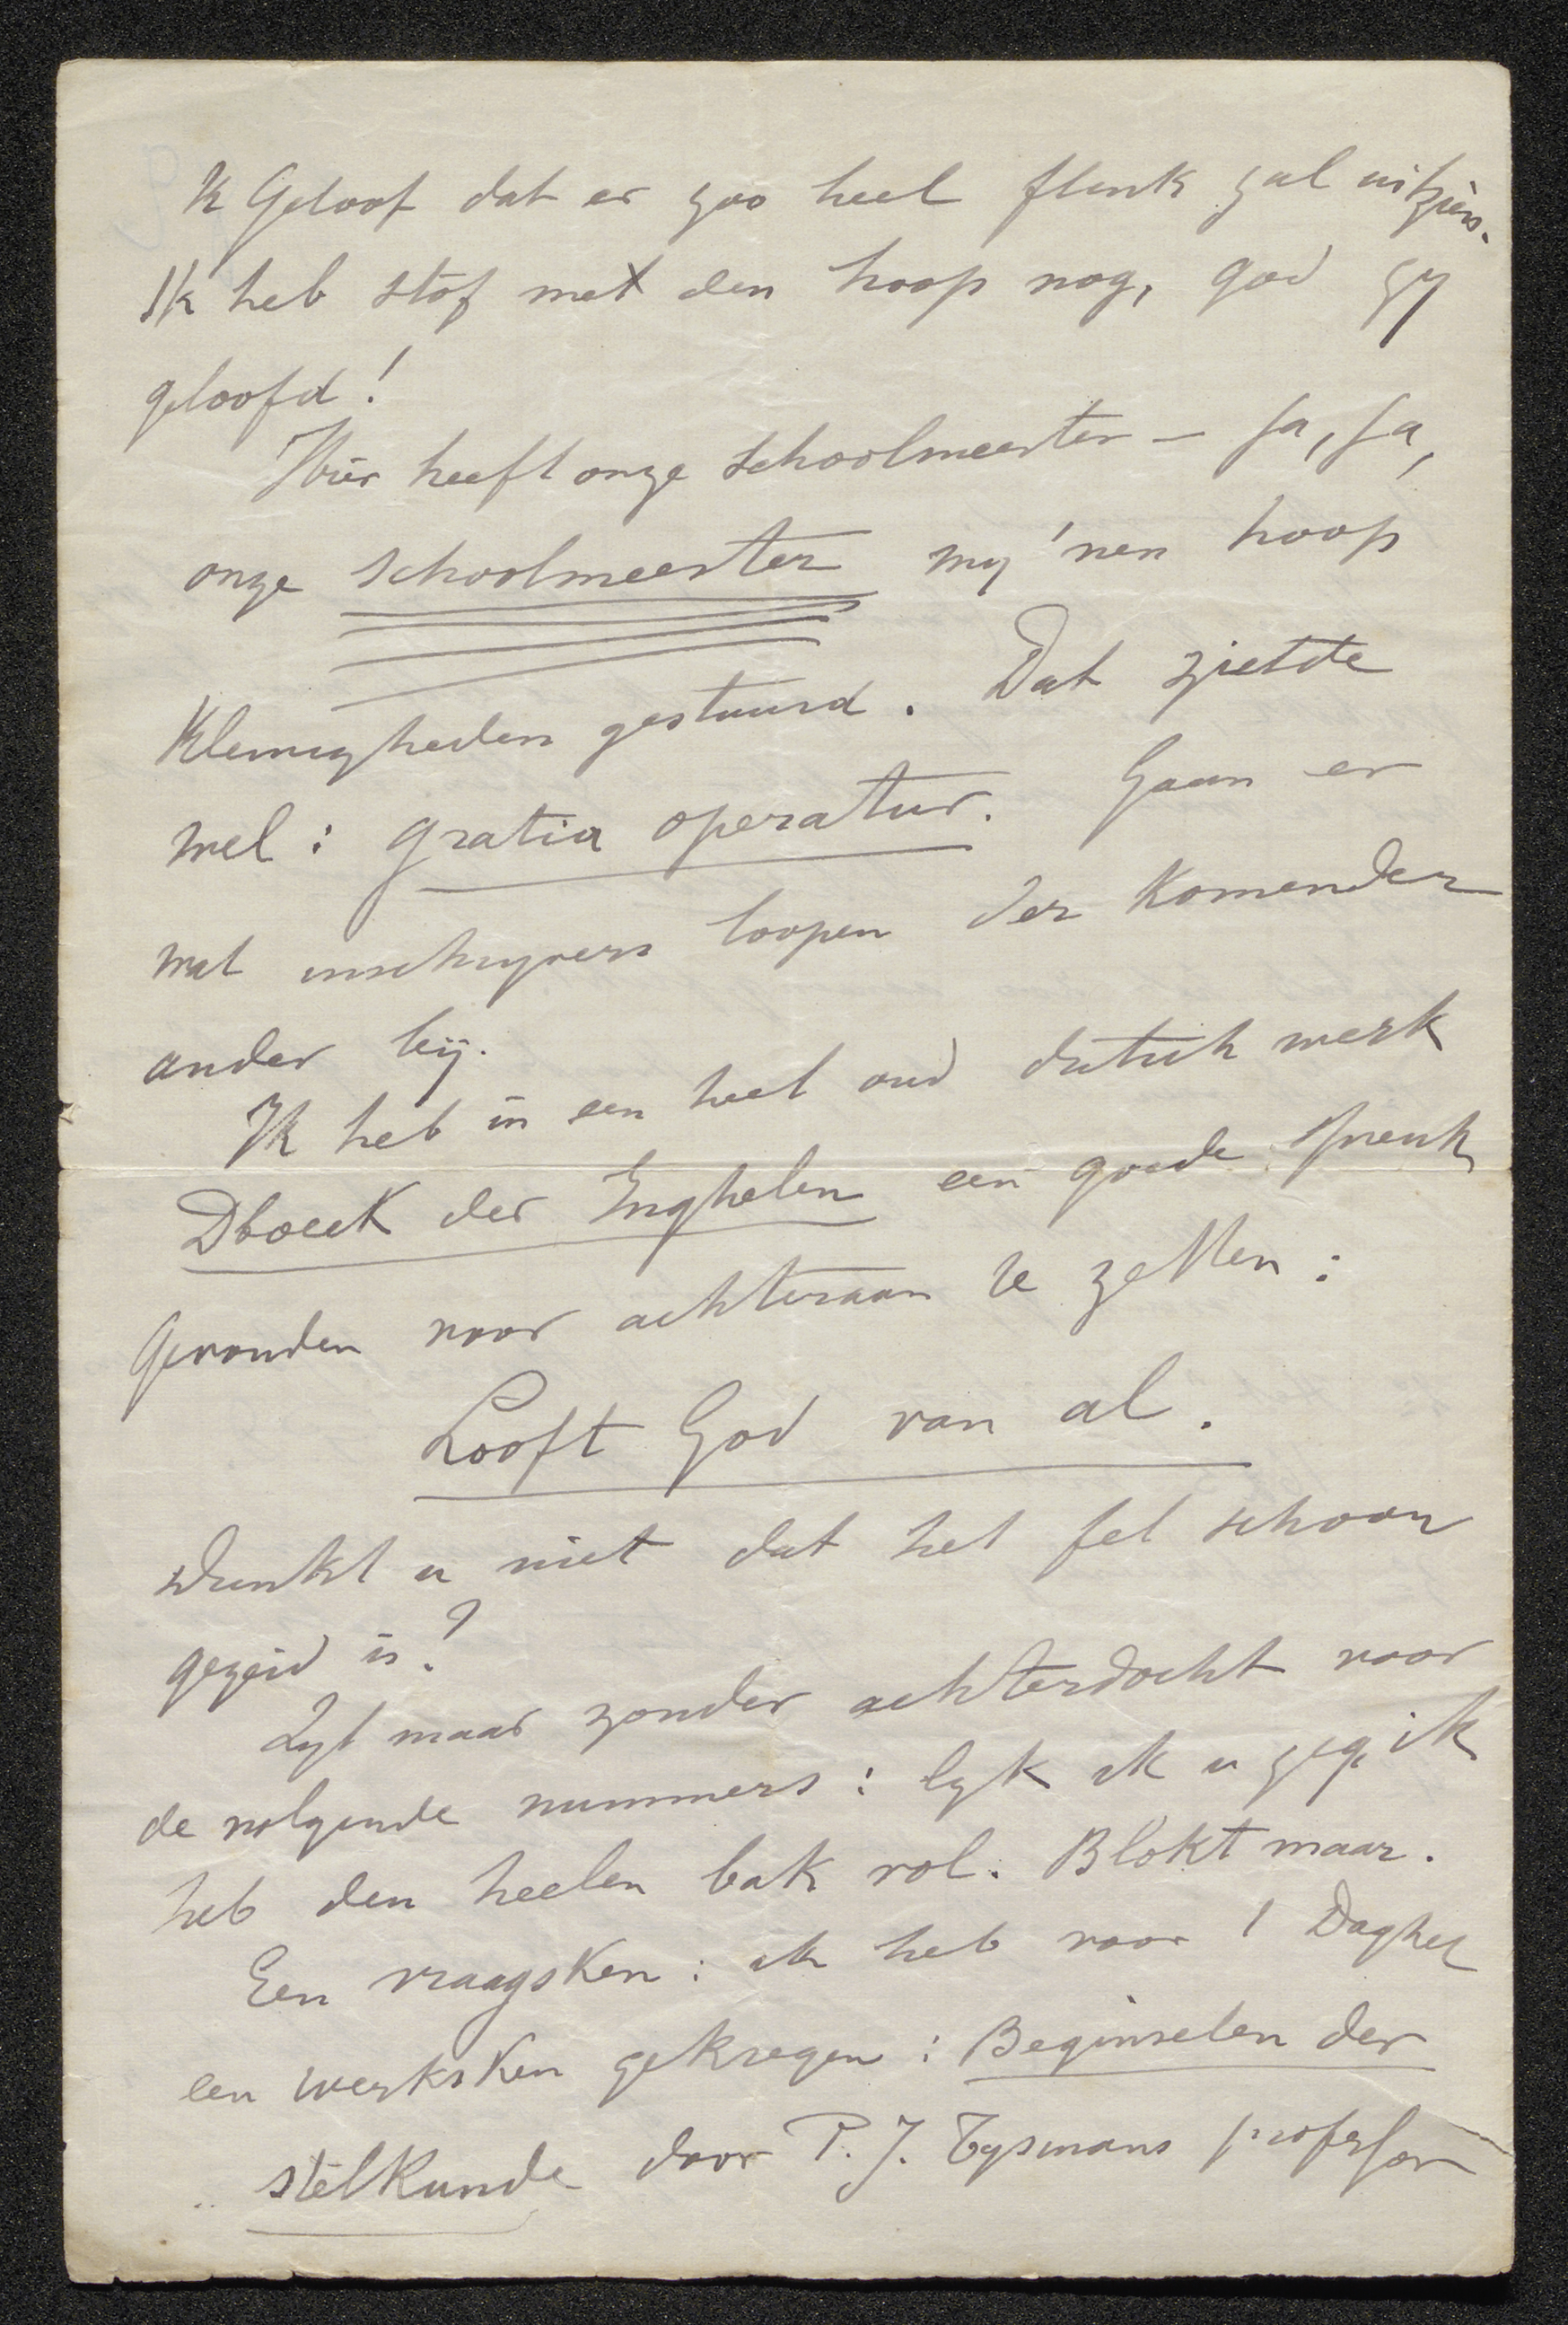 K Geloof dat er zoo heel flink zal uitzien.
Ik heb stof met den hoop nog, god zy
geloofd!
Hier heeft onze schoolmeester – ja, ja,
onze schoolmeester my 'nen hoop
Kleinigheden gestuurd. Dat ziet de
wel: gratia operatur. Gaan er
wat inschryvers loopen der komender
ander bij.
Ik heb in een heel oud dutsch werk
Dboeck der Enghelen een goede spreuk
Gevonden voor achteraan te zetten:
Looft God van al.
Dunkt u niet dat het fel schoon
gezeid is?
Zyt maar zonder achterdocht voor
de volgende nummers: lyk ik u zeg, ik
heb den heelen bak vol. Blokt maar.
Een vraagsken: ik heb voor 't Daghet
een werksken gekregen: Beginselen der
stelkunde door P. J. Tysmans professor